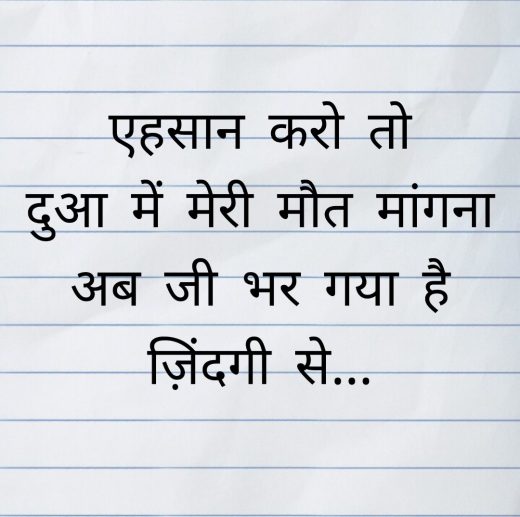 एहसान करो तो
दुआ में मेरी मौत मांगना
अब जी भर गया है
ज़िंदगी से...